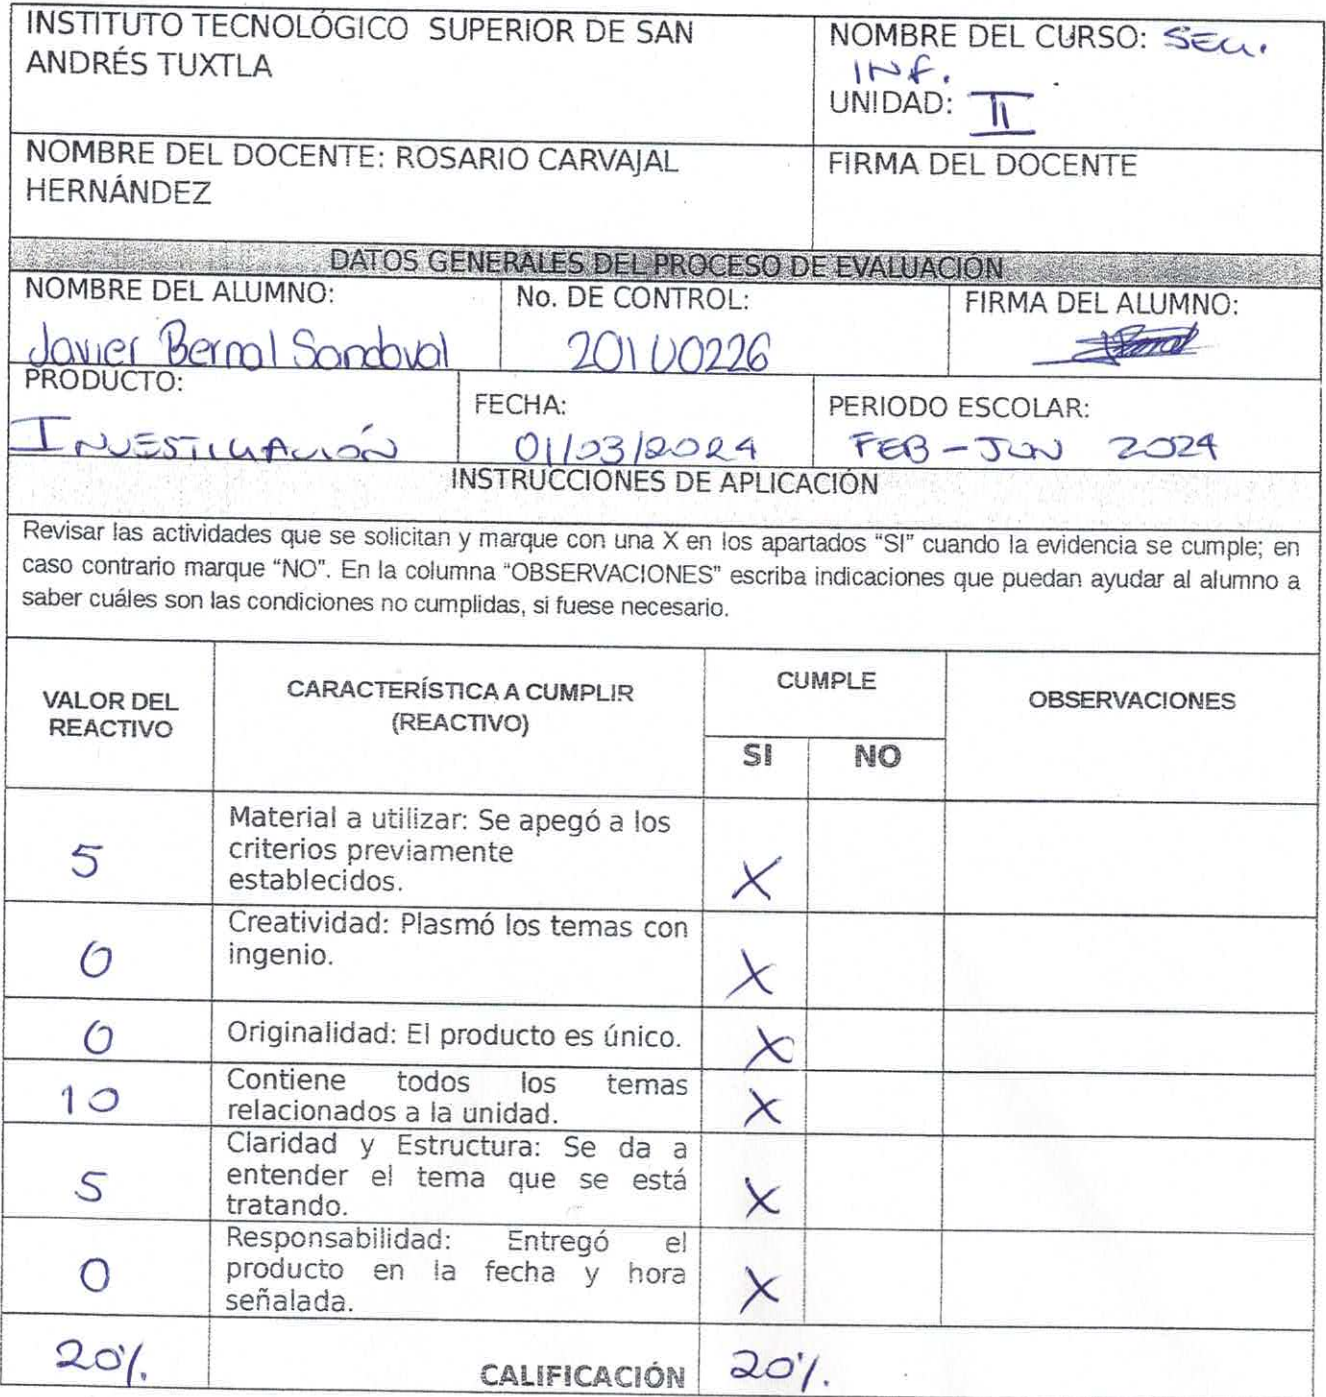 INSTITUTO TECNOLÓGICO SUPERIOR DE SAN
ANDRÉS TUXTLA
NOMBRE DEL CURSO: SEG.
INF.
UNIDAD: II
NOMBRE DEL DOCENTE: ROSARIO CARVAJAL
HERNÁNDEZ
FIRMA DEL DOCENTE
DATOS GENERALES DEL PROCESO DE EVALUACIÓN
NOMBRE DEL ALUMNO:
Javier Bernal Sandoval
No. DE CONTROL:
201U0226
FIRMA DEL ALUMNO:
PRODUCTO:
INVESTIGACIÓN
FECHA:
01/03/2024
PERIODO ESCOLAR:
FEB-JUN 2024
INSTRUCCIONES DE APLICACIÓN
Revisar las actividades que se solicitan y marque con una X en los apartados “SI” cuando la evidencia se cumple; en
caso contrario marque “NO”. En la columna “OBSERVACIONES” escriba indicaciones que puedan ayudar al alumno a
saber cuáles son las condiciones no cumplidas, si fuese necesario.
VALOR DEL
REACTIVO
CARACTERÍSTICA A CUMPLIR
(REACTIVO)
CUMPLE
SI NO
OBSERVACIONES
5
Material a utilizar: Se apegó a los
criterios previamente
establecidos.
X
0
Creatividad: Plasmó los temas con
ingenio.
X
0
Originalidad: El producto es único.
X
10
Contiene todos los temas
relacionados a la unidad.
X
5
Claridad y Estructura: Se da a
entender el tema que se está
tratando.
X
0
Responsabilidad: Entregó el
producto en la fecha y hora
señalada.
X
20%
CALIFICACIÓN
20%.